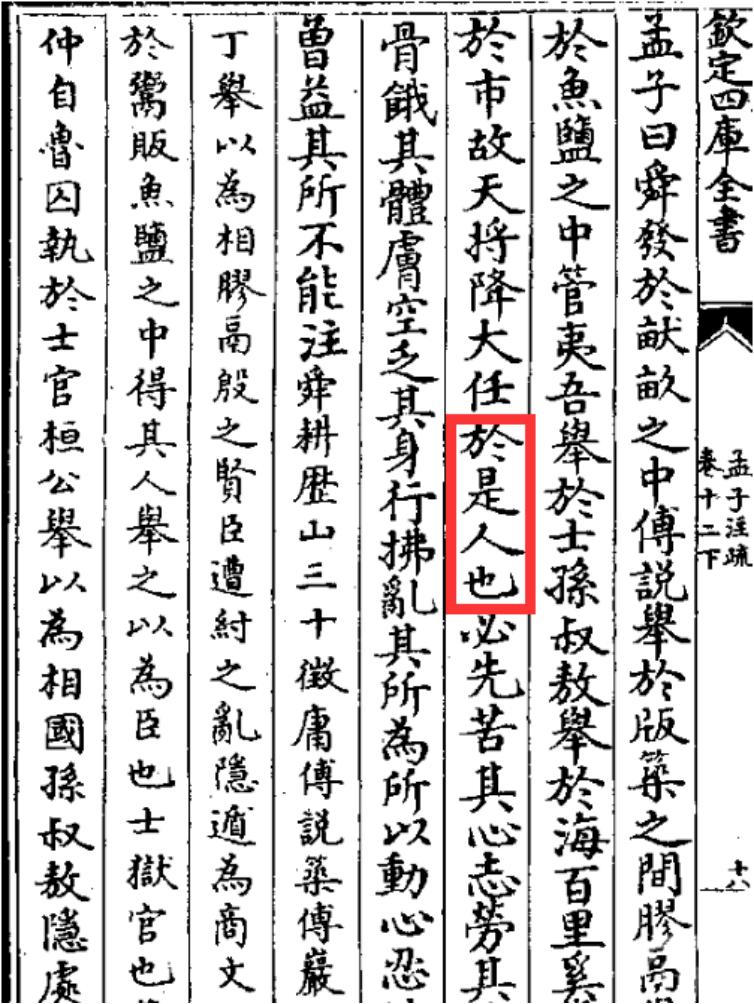 欽定四庫全書
孟子注疏
卷十二下
十八
孟子曰舜發於畎畝之中傅説舉於版築之間膠鬲
於魚鹽之中管夷吾舉於士孫叔敖舉於海百里奚
於市故天將降大任於是人也必先苦其心志勞其
骨餓其體膚空乏其身行拂亂其所為所以動心忍
曾益其所不能注舜耕歴山三十徴庸傅説築傅巖
丁舉以為相膠鬲殷之賢臣遭紂之亂隱遁為商文
於鬻販魚鹽之中得其人舉之以為臣也士獄官也
仲自魯囚執於士官桓公舉以為相國孫叔敖隱處